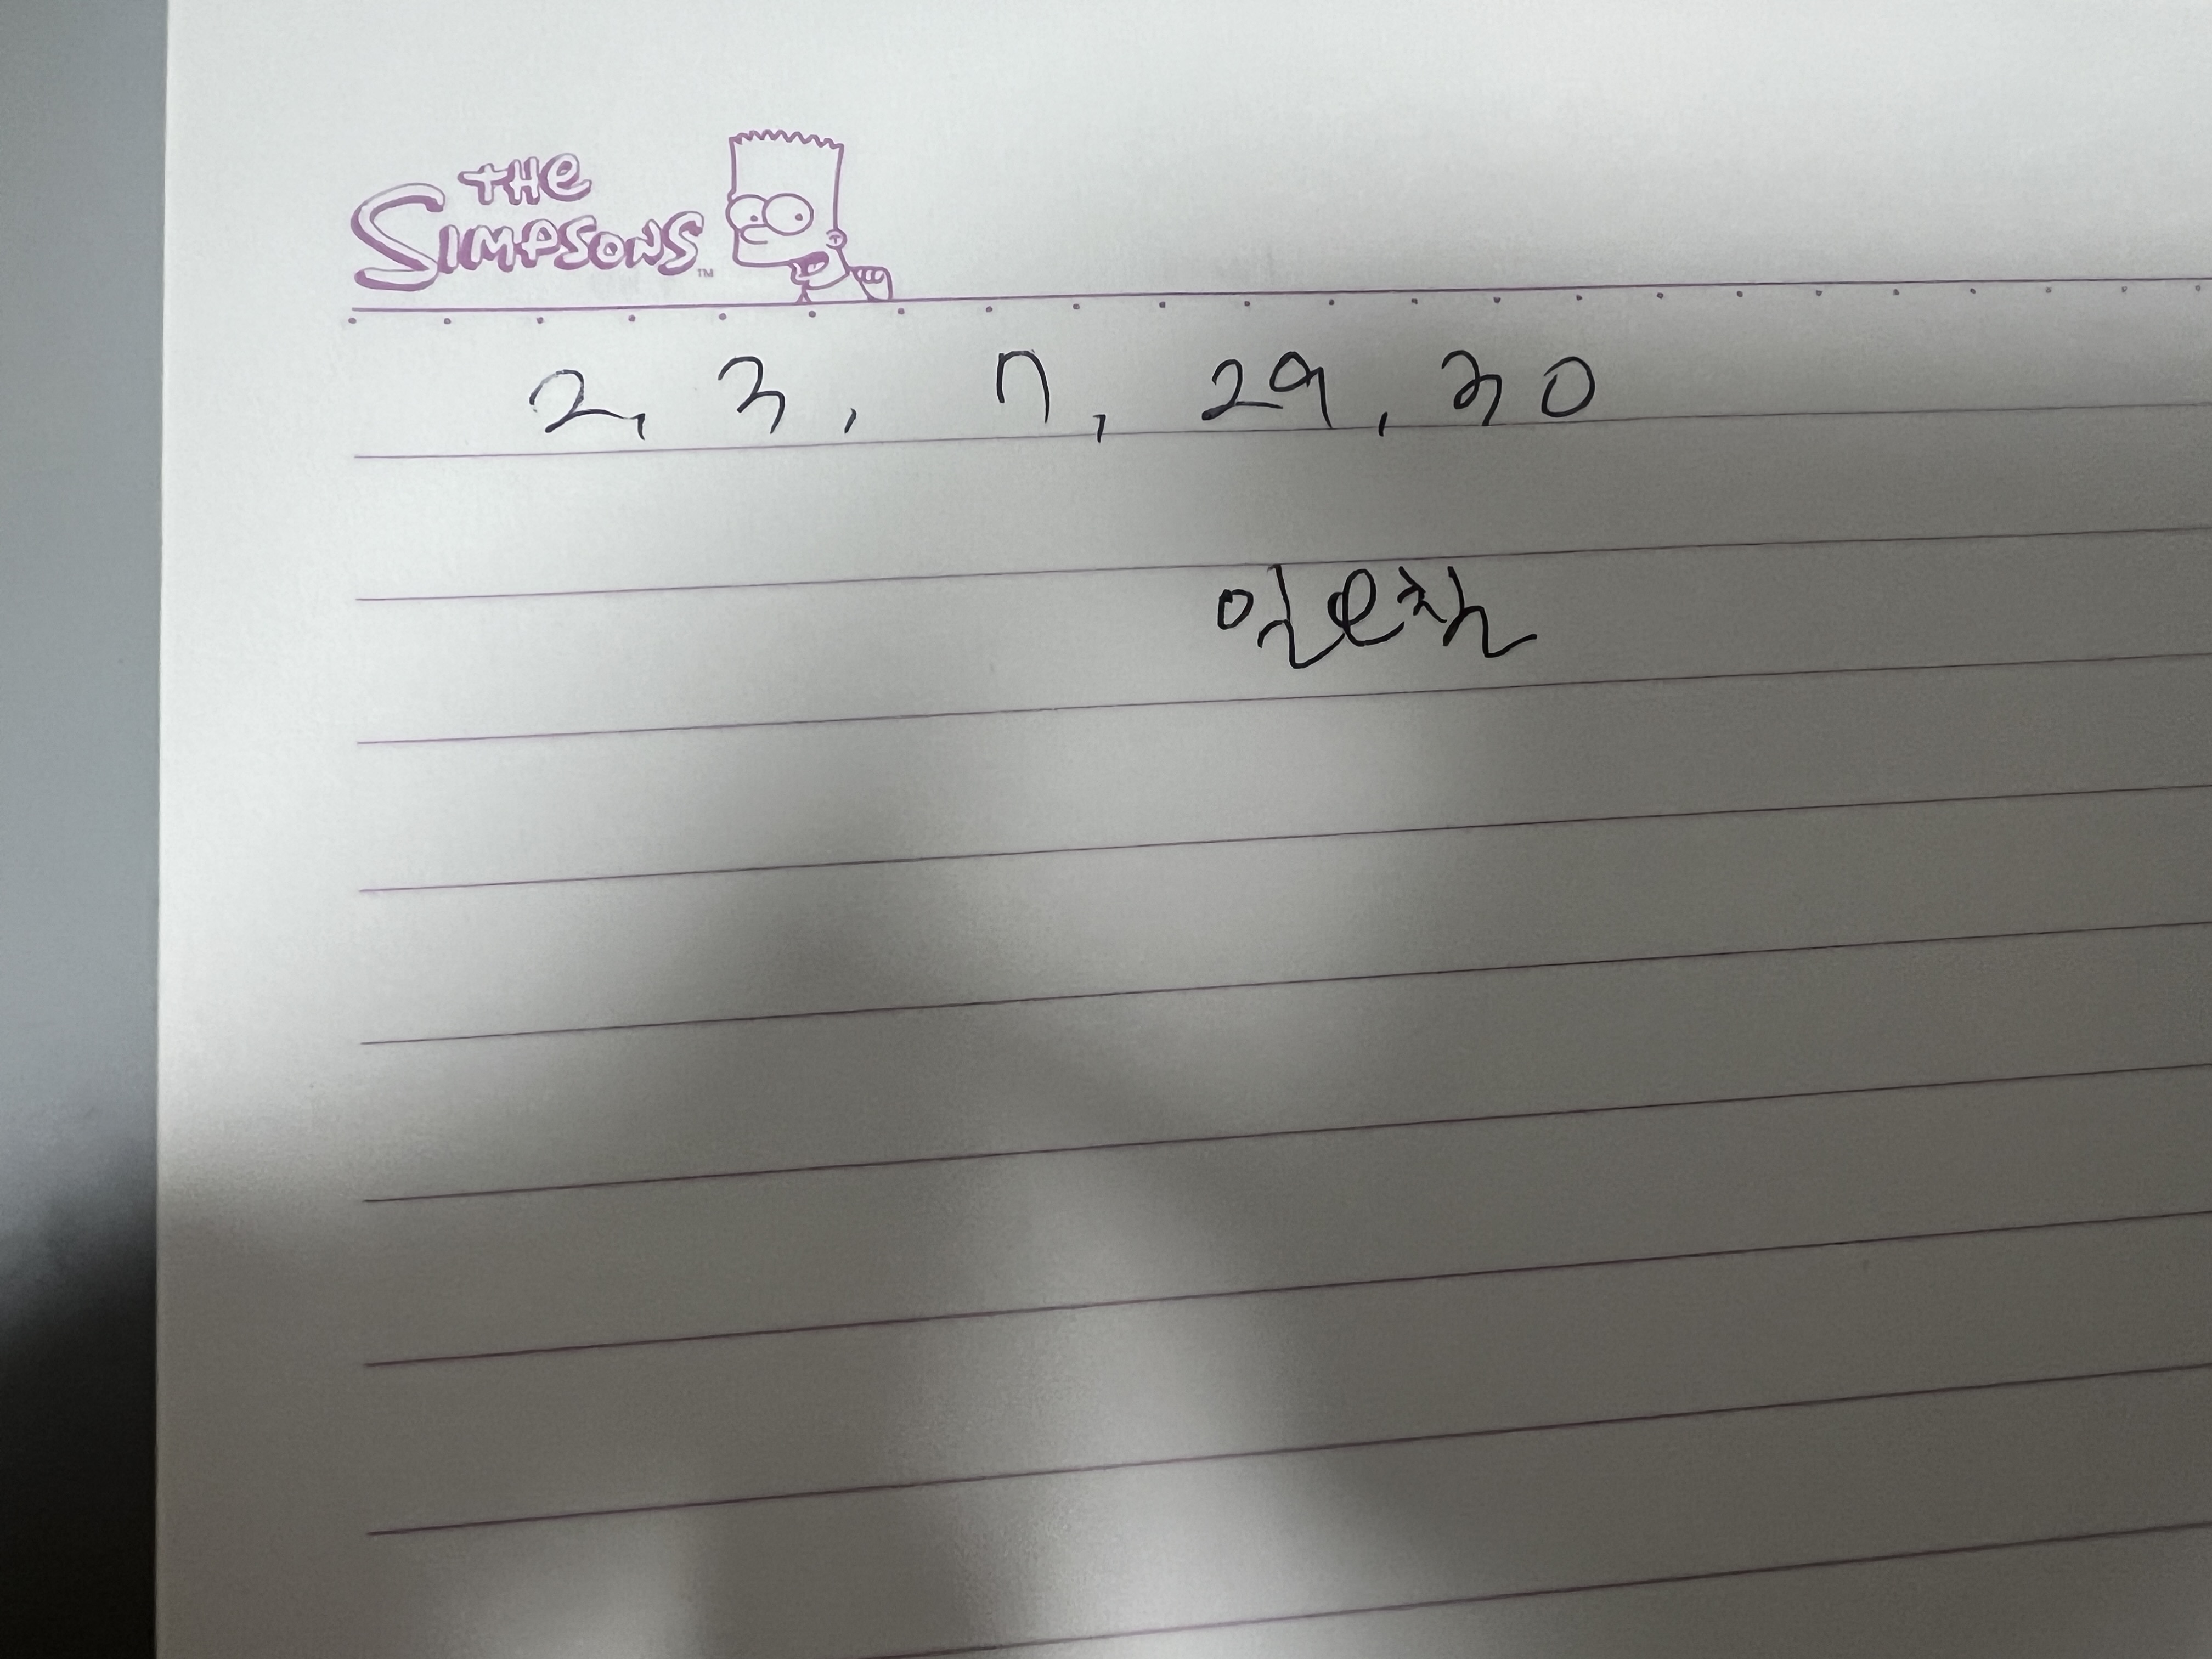 THE
SIMPSONS™
2, 3, 7, 29, 30